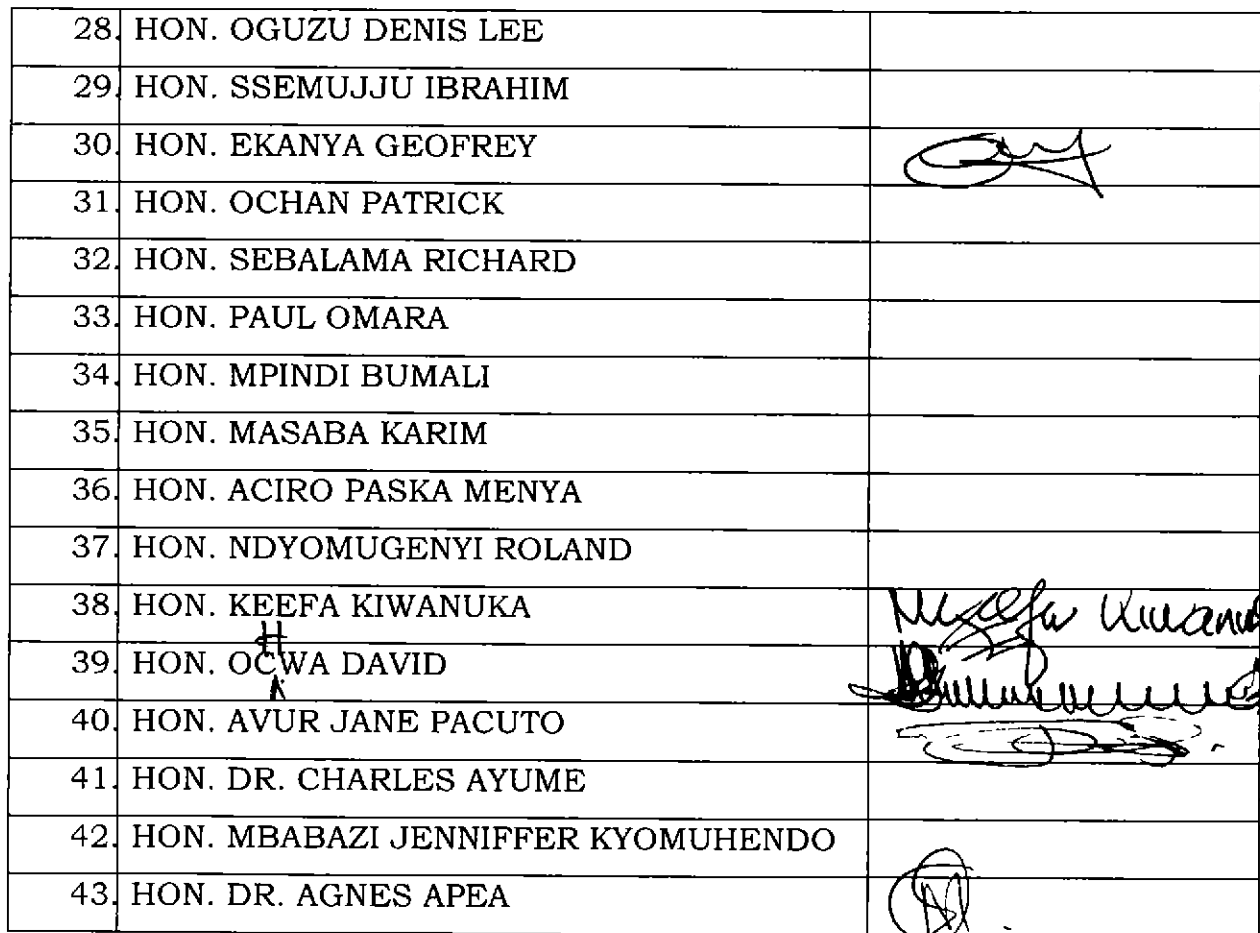 28. HON. OGUZU DENIS LEE
29. HON. SSEMUJJU IBRAHIM
30. HON. EKANYA GEOFREY
31. HON. OCHAN PATRICK
32. HON. SEBALAMA RICHARD
33. HON. PAUL OMARA
34. HON. MPINDI BUMALI
35. HON. MASABA KARIM
36. HON. ACIRO PASKA MENYA
37. HON. NDYOMUGENYI ROLAND
38. HON. KEEFA KIWANUKA
H
39. HON. OCWA DAVID
40. HON. AVUR JANE PACUTO
41. HON. DR. CHARLES AYUME
42. HON. MBABAZI JENNIFFER KYOMUHENDO
43. HON. DR. AGNES APEA